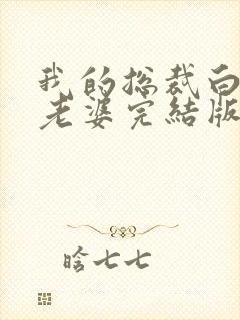 我的总裁白
老婆完结版
晗七七